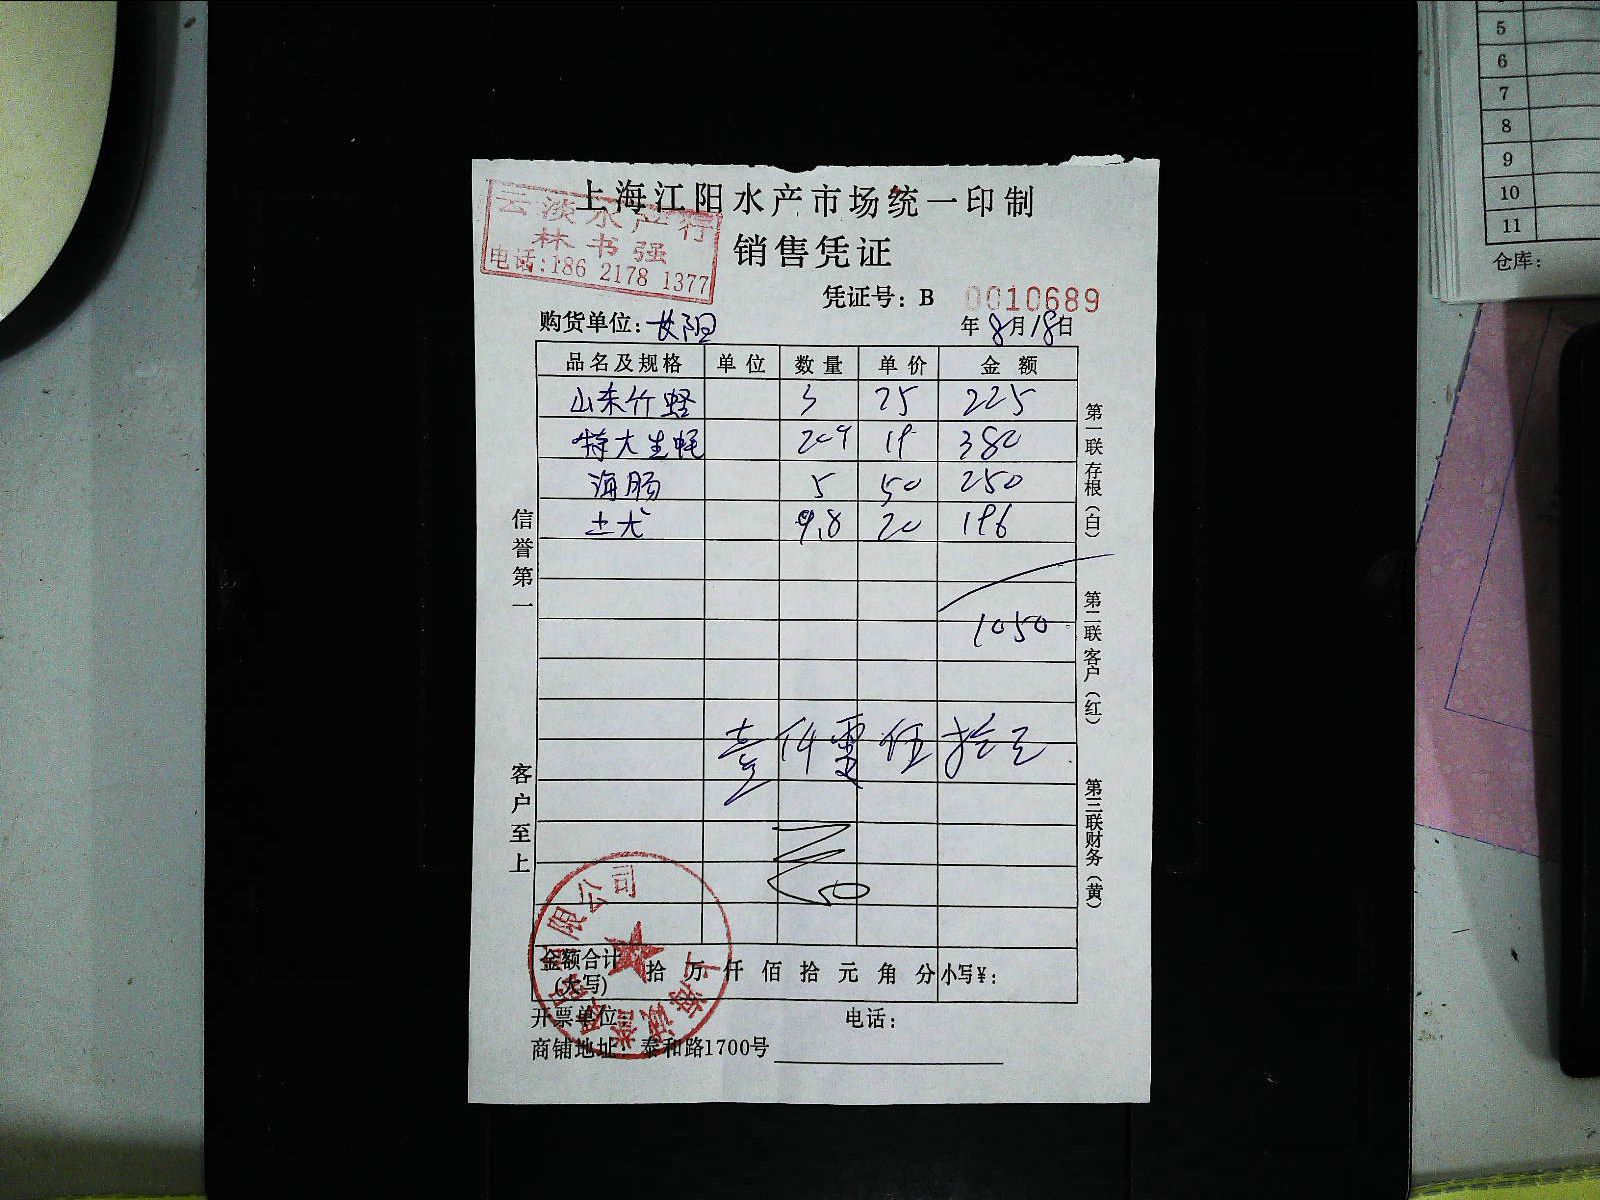 上海江阳水产市场统一印制
云淡水产行
林书强
电话:186 2178 1377
销售凭证
凭证号：B 0010689
购货单位：
年8月18日
品名及规格 单位 数量 单价 金额
山东竹蛏 3 75 225
特大生蚝 20个 19 380
海肠 5 50 250
土尤 9.8 20 196
1050
壹仟零伍拾元
信誉第一
客户至上
第一联存根（白）
第二联客户（红）
第三联财务（黄）
金额合计(大写) 拾 万 仟 佰 拾 元 角 分 小写¥：
开票单位 电话：
商铺地址：泰和路1700号
有限公司
上海诚
5
6
7
8
9
10
11
仓库：